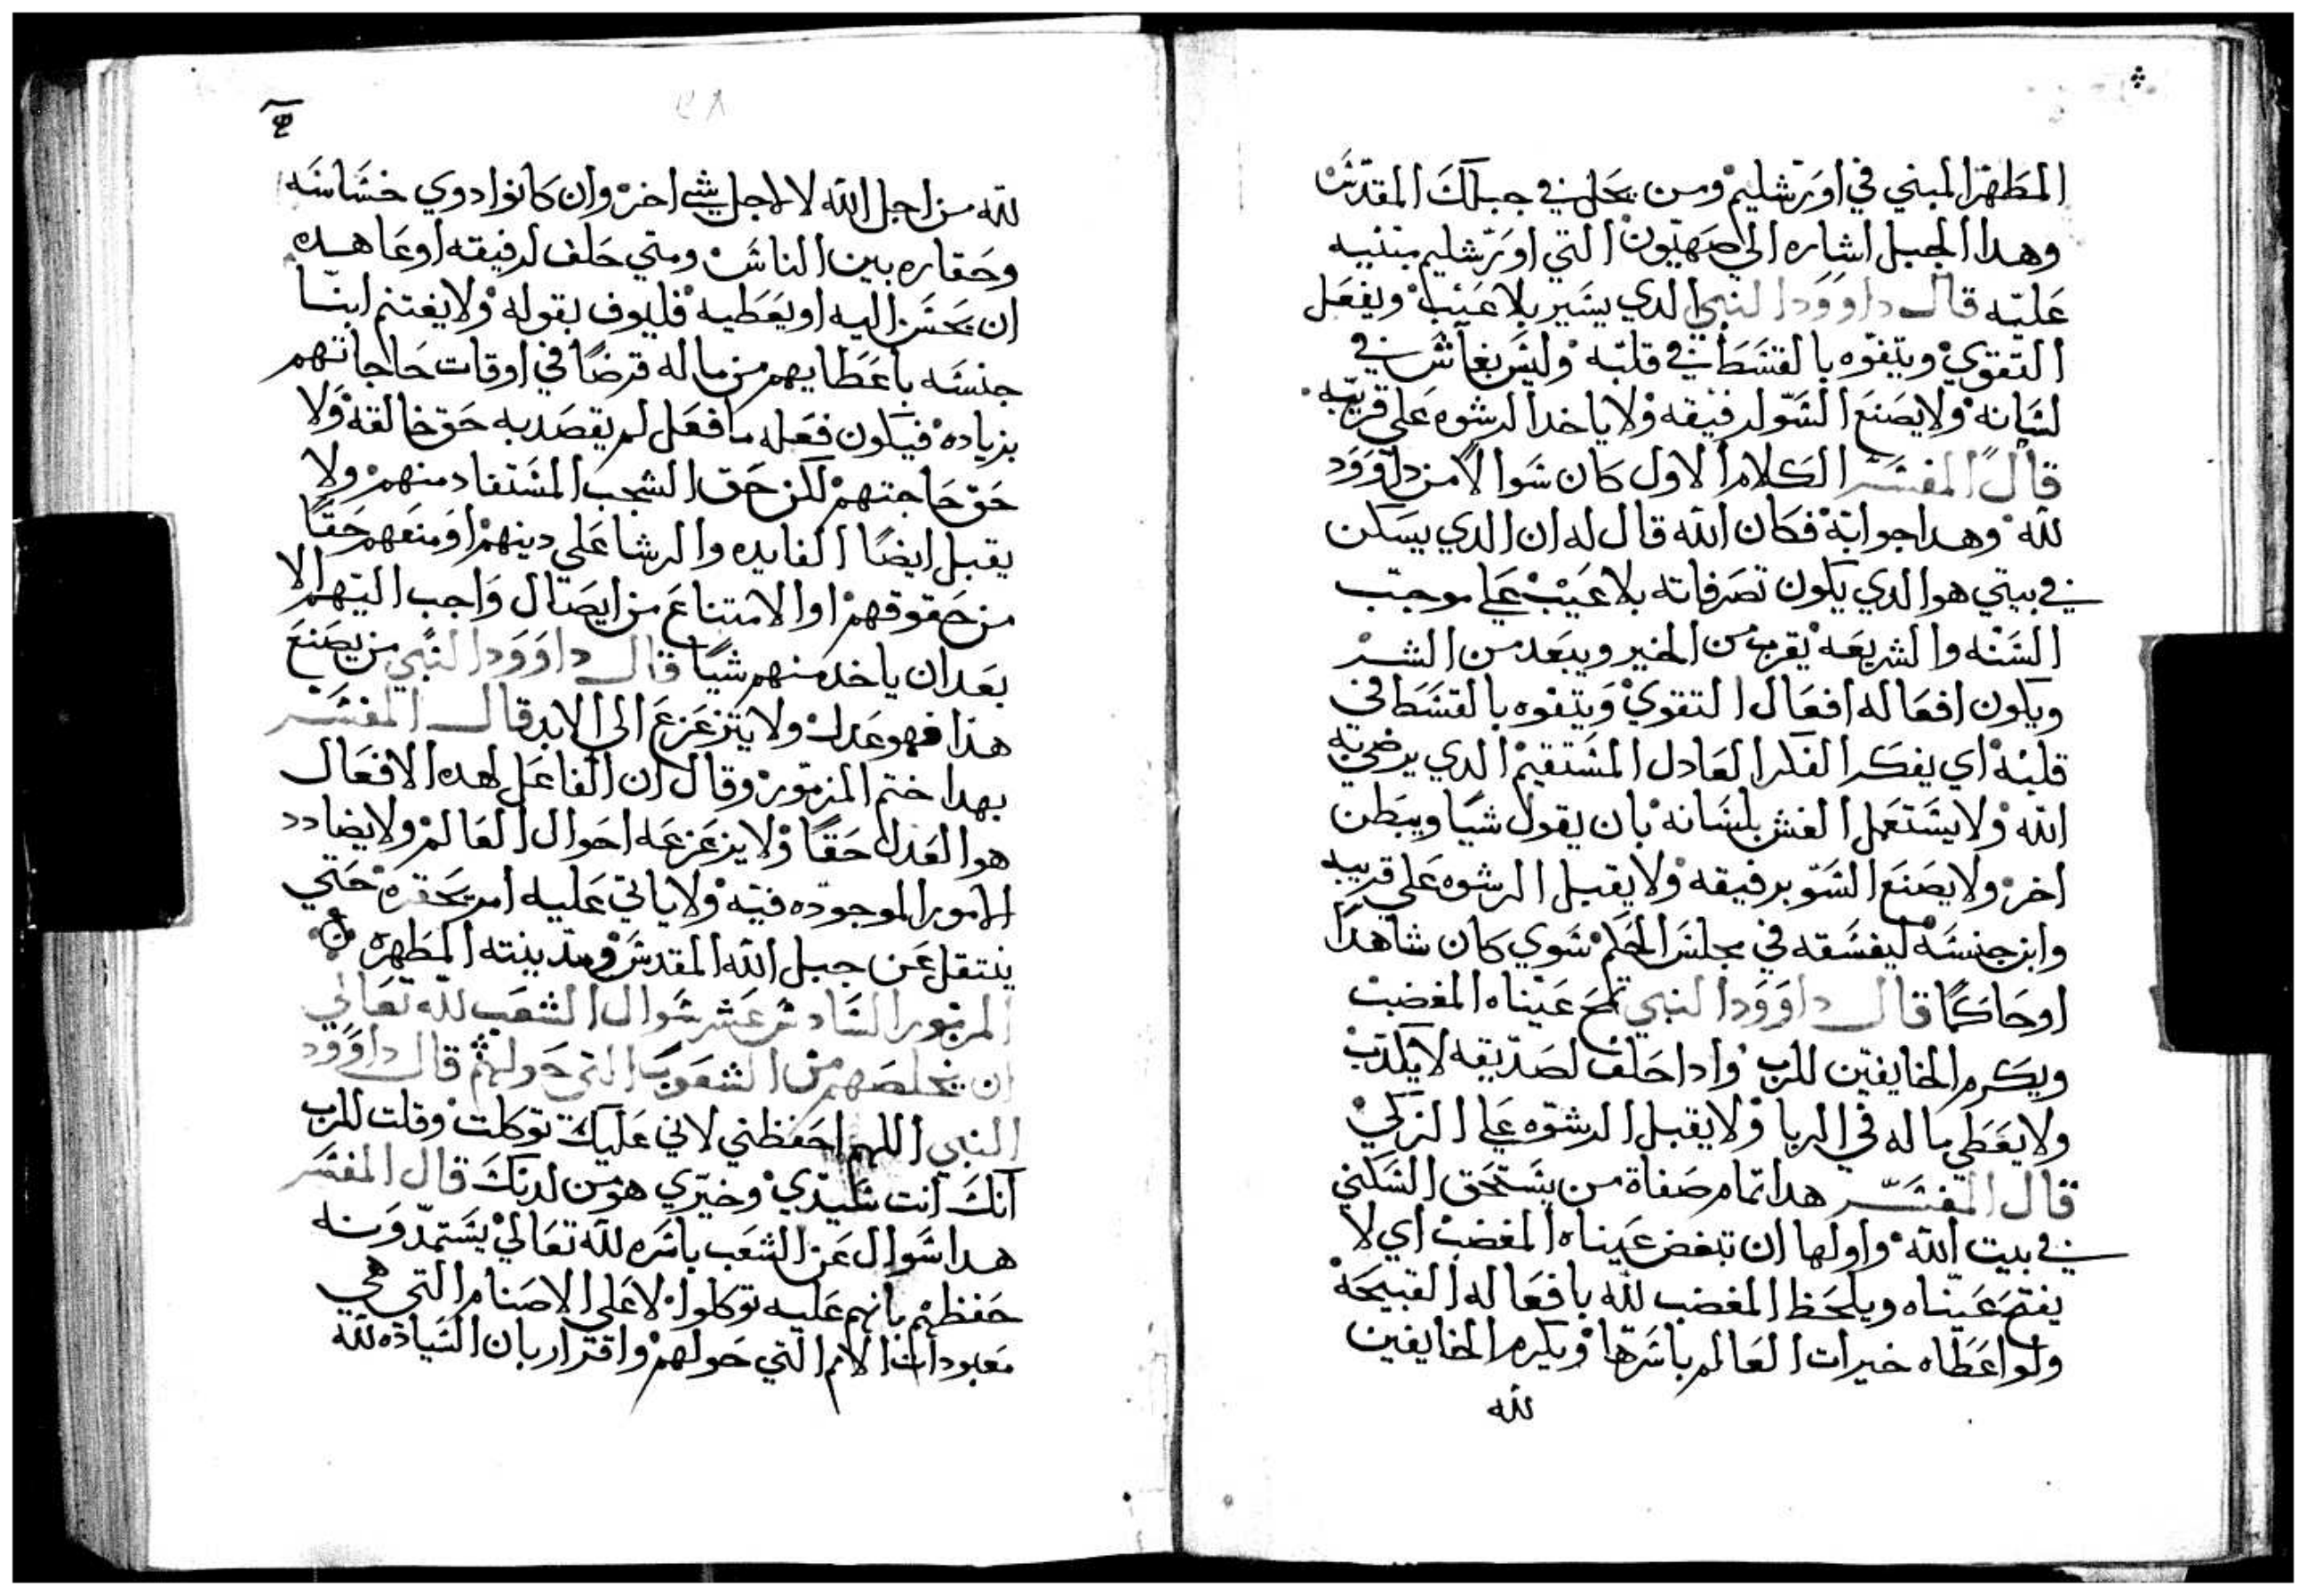 المطهر المبني في اورشليم ومن يحل في جبلك المقدس
وهدا الجبل اشاره الي صهيون التي اورشليم مبنيه
عليه قال داوود النبي الدي يسير بلا عيب ويفعل
التقوي ويتفوه بالقسط في قلبه وليس بغاش في
لسانه ولا يصنع السو لرفيقه ولا ياخد الرشوه علي قريبه
قال المفسر الكلام الاول كان سوالا من داوود
لله وهدا جوابه فكان الله قال له ان الدي يسكن
في بيتي هو الدي يكون تصرفاته بلا عيب علي موجب
السنه والشريعه يقرب من الخير ويبعد من الشر
ويكون افعاله افعال التقوي ويتفوه بالقسط في
قلبه اي يفكر الفكر العادل المستقيم الدي يرضي به
الله ولا يستعمل الغش بلسانه بان يقول شيا ويبطن
اخر ولا يصنع السو برفيقه ولا يقبل الرشوه علي قريبه
وابن جنسه ليفسقه في مجلس الحكم سوي كان شاهدا
او حاكما قال داوود النبي عيناه المغضب
ويكرم الخايفين للرب وادا حلف لصديقه لا يكدب
ولا يعطي ماله في الربا ولا يقبل الرشوه علي الزكي
قال المفسر هدا تمام صفاة من يستحق السكني
في بيت الله واولها ان تبغض عيناه المغضب اي لا
يفتح عيناه ويلحظ المغضب لله بافعاله القبيحه
ولو اعطاه خيرات العالم باسرها ويكرم الخايفين
لله
لله من اجل الله لا لاجل شي اخر وان كانوا دوي خساسه
وحقاره بين الناس ومتي حلف لرفيقه او عاهده
ان يحسن اليه او يعطيه فليوف بقوله ولا يغتنم ابنا
جنسه باعطايهم من ماله قرضا في اوقات حاجاتهم
بزياده فيكون فعله ما فعل لم يقصد به حق خالقه ولا
حق حاجتهم لكن حق الشجب المستفاد منهم ولا
يقبل ايضا الفايده والرشا علي دينهم او منعهم حقا
من حقوقهم او الامتناع من ايصال واجب اليهم الا
بعد ان ياخد منهم شيا قال داوود النبي من يصنع
هذا فهو عدل ولا يتزعزع الي الابد قال المفسر
بهدا ختم المزمور وقال ان الفاعل لهده الافعال
هو العدل حقا ولا يزعزعه احوال العالم ولا يضادد
الامور الموجوده فيه ولا ياتي عليه امر يحقره حتي
ينتقل عن جبل الله المقدس ومدينته المطهره
المزمور السادس عشر سوال الشعب لله تعالي
ان يخلصهم من الشعوب التي حولهم قال داوود
النبي اللهم احفظني لاني عليك توكلت وقلت للرب
انك انت سيدي وخيري هو من لدنك قال المفسر
هدا سوال عن الشعب باسره لله تعالي يستمدونه
حفظهم بانهم عليه توكلوا لا علي الاصنام التي هي
معبودات الامم التي حولهم واقرار بان السياده لله